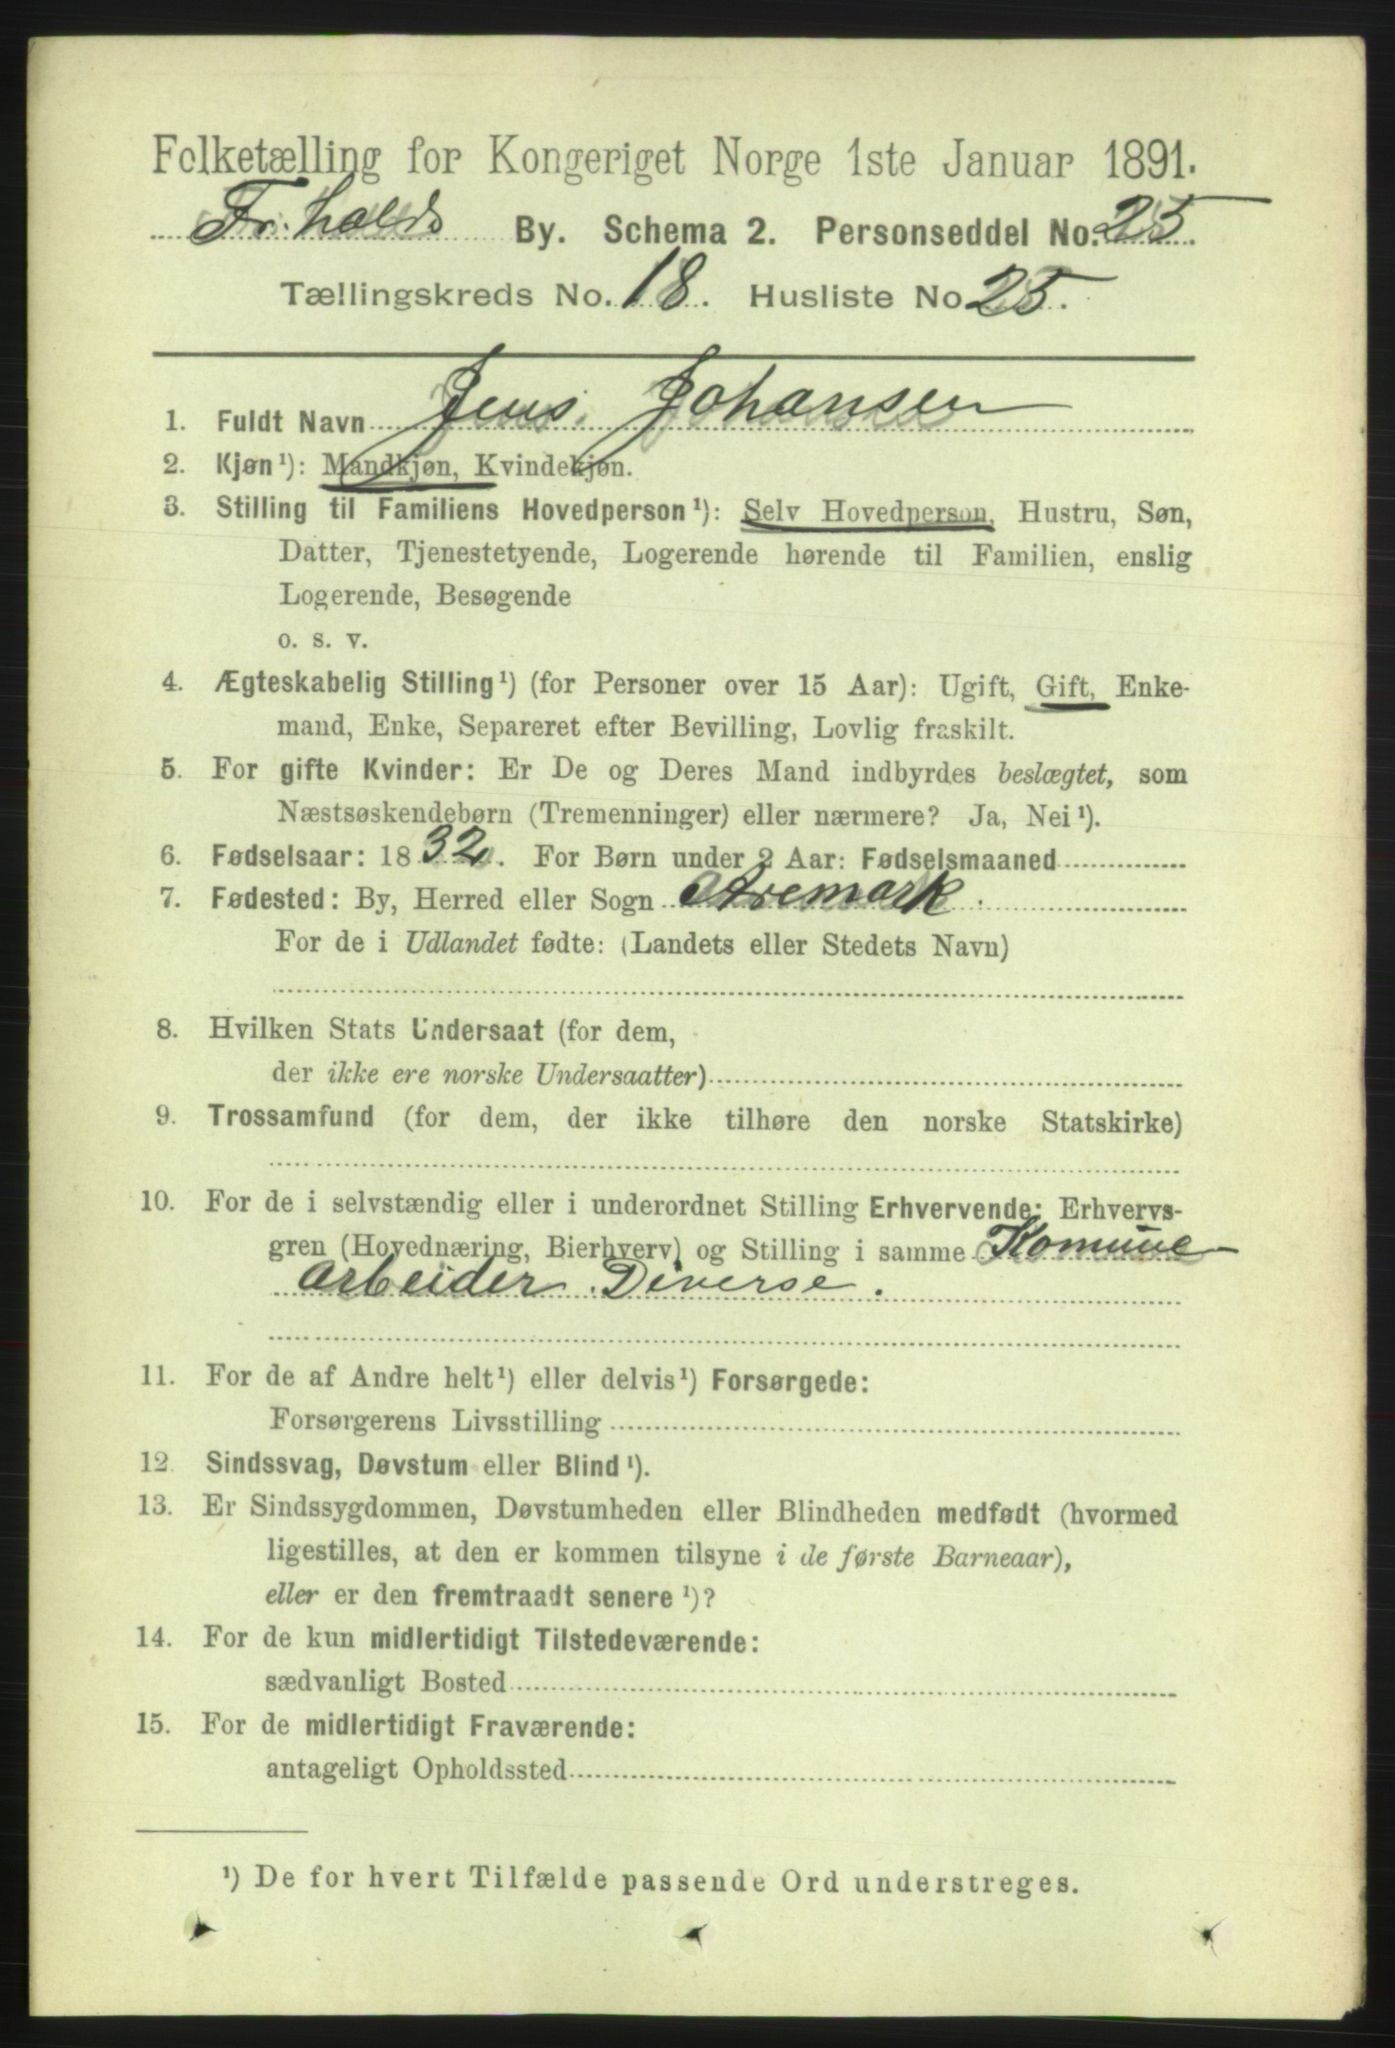 Folketælling for Kongeriget Norge 1ste Januar 1891.
Fr.halds By. Schema 2. Personseddel No. 25
Tællingskreds No. 18. Husliste No 25.
1. Fuldt Navn Jens Johansen
2. Kjøn¹): Mandkjøn, Kvindekjøn.
3. Stilling til Familiens Hovedperson¹): Selv Hovedperson, Hustru, Søn,
Datter, Tjenestetyende, Logerende hørende til Familien, enslig
Logerende, Besøgende
o. s. v.
4. Ægteskabelig Stilling¹) (for Personer over 15 Aar): Ugift, Gift, Enke-
mand, Enke, Separeret efter Bevilling, Lovlig fraskilt.
5. For gifte Kvinder: Er De og Deres Mand indbyrdes beslægtet, som
Næstsøskendebørn (Tremenninger) eller nærmere? Ja, Nei¹).
6. Fødselsaar: 1832. For Børn under 2 Aar: Fødselsmaaned
7. Fødested: By, Herred eller Sogn Aremark.
For de i Udlandet fødte: (Landets eller Stedets Navn)
8. Hvilken Stats Undersaat (for dem,
der ikke ere norske Undersaatter)
9. Trossamfund (for dem, der ikke tilhøre den norske Statskirke)
10. For de i selvstændig eller i underordnet Stilling Erhvervende: Erhvervs-
gren (Hovednæring, Bierhverv) og Stilling i samme Komune
arbeider. Diverse.
11. For de af Andre helt¹) eller delvis¹) Forsørgede:
Forsørgerens Livsstilling
12. Sindssvag, Døvstum eller Blind¹).
13. Er Sindssygdommen, Døvstumheden eller Blindheden medfødt (hvormed
ligestilles, at den er kommen tilsyne i de første Barneaar),
eller er den fremtraadt senere¹)?
14. For de kun midlertidigt Tilstedeværende:
sædvanligt Bosted
15. For de midlertidigt Fraværende:
antageligt Opholdssted
¹) De for hvert Tilfælde passende Ord understreges.